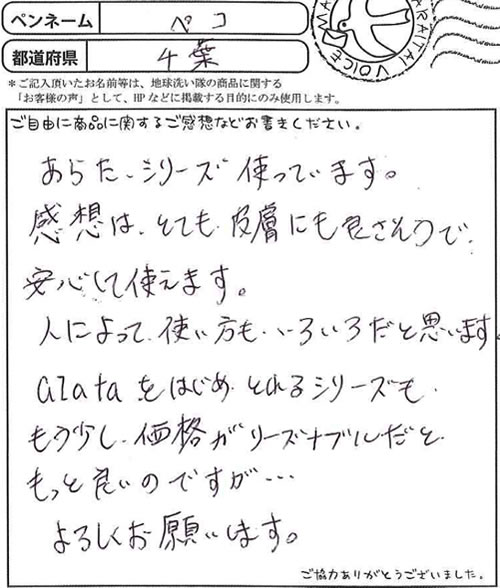 ペンネーム ペコ
都道府県 千葉
*ご記入頂いたお名前等は、地球洗い隊の商品に関する
「お客様の声」として、HPなどに掲載する目的にのみ使用します。
ARAITAI VOICE
ご自由に商品に関するご感想などお書きください。
あらた、シリーズ使っています。
感想は、とても、皮膚にも良さそうで、
安心して使えます。
人によって、使い方も、いろいろだと思います。
arataをはじめ、とれるシリーズも、
もう少し、価格がリーズナブルだと、
もっと良いのですが…
よろしくお願いします。
ご協力ありがとうございました。